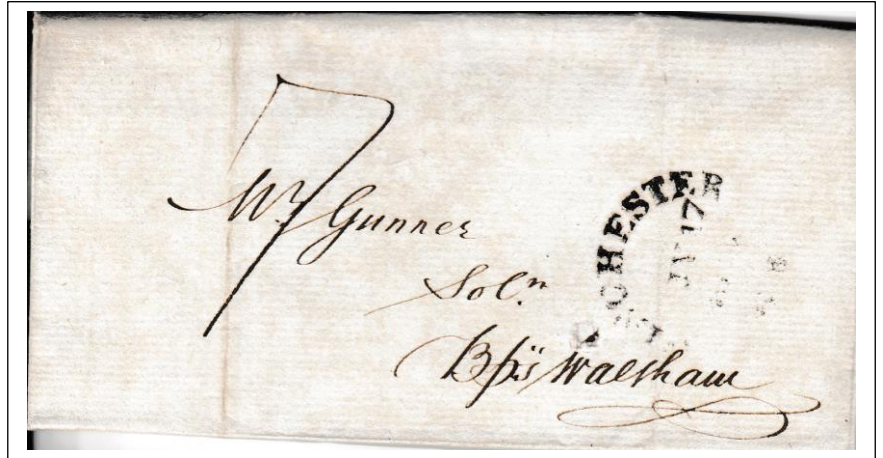 7
Mr Gunner
Soln
Bps Waltham
CHESTER
17